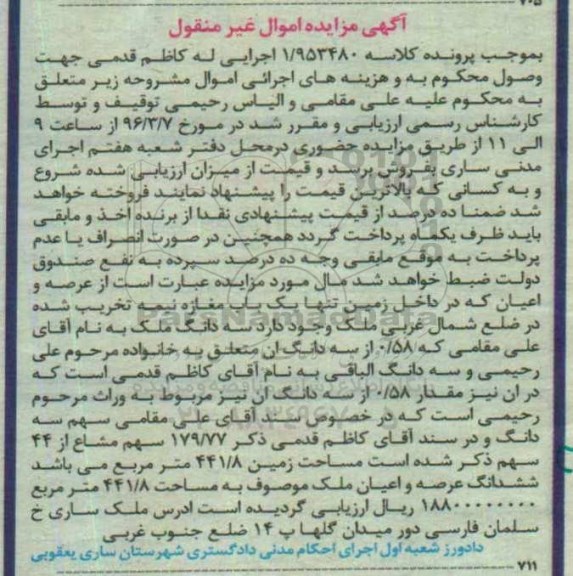 ۷۰۵
آگهی مزایده اموال غیر منقول
بموجب پرونده کلاسه ۱/۹۵۳۴۸۰ اجرایی له کاظم قدمی جهت
وصول محکوم به و هزینه های اجرائی اموال مشروحه زیر متعلق
به محکوم علیه علی مقامی و الیاس رحیمی توقیف و توسط
کارشناس رسمی ارزیابی و مقرر شد در مورخ ۹۶/۳/۷ از ساعت ۹
الی ۱۱ از طریق مزایده حضوری درمحل دفتر شعبه هفتم اجرای
مدنی ساری بفروش برسد و قیمت از میزان ارزیابی شده شروع
و به کسانی که بالاترین قیمت را پیشنهاد نمایند فروخته خواهد
شد ضمنا ده درصد از قیمت پیشنهادی نقدا از برنده اخذ و مابقی
باید ظرف یکماه پرداخت گردد همچنین در صورت انصراف یا عدم
پرداخت به موقع مابقی وجه ده درصد سپرده به نفع صندوق
دولت ضبط خواهد شد مال مورد مزایده عبارت است از عرصه و
اعیان که در داخل زمین تنها یک باب مغازه نیمه تخریب شده
در ضلع شمال غربی ملک وجود دارد سه دانگ ملک به نام آقای
علی مقامی که ۰/۵۸ از سه دانگ ان متعلق به خانواده مرحوم علی
رحیمی و سه دانگ الباقی به نام آقای کاظم قدمی است که
در ان نیز مقدار ۰/۵۸ از سه دانگ ان نیز مربوط به وراث مرحوم
رحیمی است که در خصوص سند آقای علی مقامی سهم سه
دانگ و در سند آقای کاظم قدمی ذکر ۱۷۹/۷۷ سهم مشاع از ۴۴
سهم ذکر شده است مساحت زمین ۴۴۱/۸ متر مربع می باشد
ششدانگ عرصه و اعیان ملک موصوف به مساحت ۴۴۱/۸ متر مربع
۱۸۸۰۰۰۰۰۰۰۰ ریال ارزیابی گردیده است ادرس ملک ساری خ
سلمان فارسی دور میدان گلها پ ۱۴ ضلع جنوب غربی
دادورز شعبه اول اجرای احکام مدنی دادگستری شهرستان ساری یعقوبی
۷۱۱